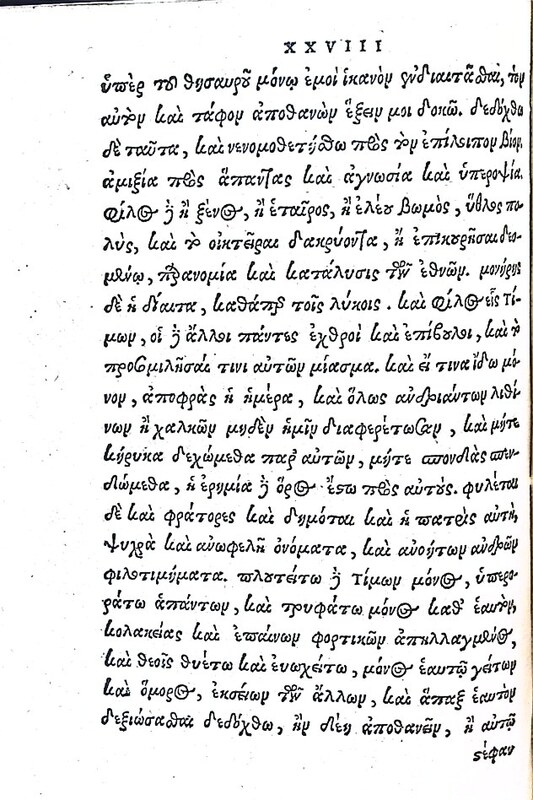 XXVIII
ὑπὲρ τοῦ θησαυροῦ μόνῳ ἐμοὶ ἱκανὸν ἐνδιαιτᾶσθαι, τὸν
αὐτὸν καὶ τάφον ἀποθανὼν ἕξειν μοι δοκῶ. δεδόχθω
δὲ ταῦτα, καὶ νενομοθετήσθω πρὸς τὸν ἐπίλοιπον βίον,
ἀμιξία πρὸς ἅπαντας καὶ ἀγνωσία καὶ ὑπεροψία.
φίλος δὲ ἢ ξένος, ἢ ἑταῖρος, ἢ ἐλέου βωμὸς, ὕθλος πο-
λὺς, καὶ τὸ οἰκτεῖραι δακρύοντα, ἢ ἐπικουρῆσαι δεο-
μένῳ, παρανομία καὶ κατάλυσις τῶν ἐθνῶν. μονήρης
δὲ ἡ δίαιτα, καθάπερ τοῖς λύκοις. καὶ φίλος εἷς Τί-
μων, οἱ δὲ ἄλλοι πάντες ἐχθροὶ καὶ ἐπίβουλοι, καὶ τὸ
προσομιλῆσαί τινι αὐτῶν μίασμα. καὶ εἴ τινα ἴδω μό-
νον, ἀποφρὰς ἡ ἡμέρα, καὶ ὅλως ἀνδριάντων λιθί-
νων ἢ χαλκῶν μηδὲν ἡμῖν διαφερέτωσαν, καὶ μήτε
κήρυκα δεχώμεθα παρ' αὐτῶν, μήτε σπονδὰς σπεν-
δώμεθα, ἡ ἐρημία δὲ ὅρος ἔστω πρὸς αὐτούς. φυλέται
δὲ καὶ φράτορες καὶ δημόται καὶ ἡ πατρὶς αὐτὴ,
ψυχρὰ καὶ ἀνωφελῆ ὀνόματα, καὶ ἀνοήτων ἀνδρῶν
φιλοτιμήματα. πλουτείτω δὲ Τίμων μόνος, ὑπερο-
ράτω ἁπάντων, καὶ τρυφάτω μόνος καθ' ἑαυτὸν,
κολακείας καὶ ἐπαίνων φορτικῶν ἀπηλλαγμένος,
καὶ θεοῖς θυέτω καὶ εὐωχείτω, μόνος ἑαυτῷ γείτων
καὶ ὅμορος, ἐκσείων τῶν ἄλλων, καὶ ἅπαξ ἑαυτὸν
δεξιώσασθαι δεδόχθω, ἢν δέῃ ἀποθανεῖν, ἢ αὑτῷ
στέφαν